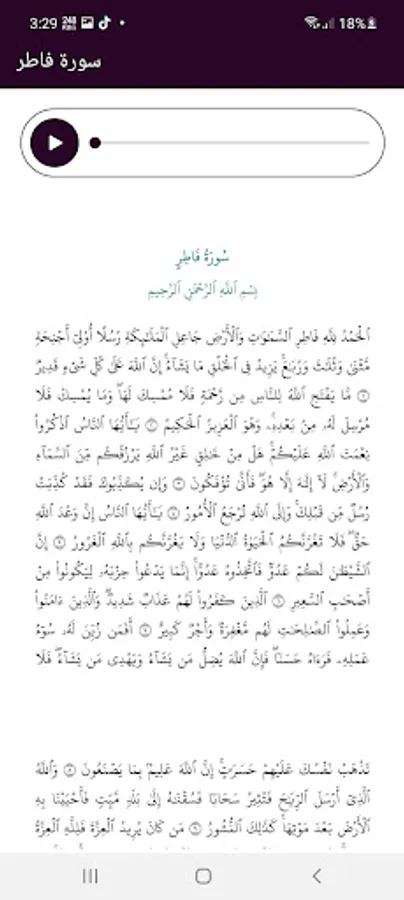 3:29
18%
سورة فاطر
سُورَةُ فَاطِرٍ
بِسْمِ ٱللَّهِ ٱلرَّحْمَٰنِ ٱلرَّحِيمِ
ٱلْحَمْدُ لِلَّهِ فَاطِرِ ٱلسَّمَٰوَٰتِ وَٱلْأَرْضِ جَاعِلِ ٱلْمَلَٰٓئِكَةِ رُسُلًا أُو۟لِىٓ أَجْنِحَةٍ
مَّثْنَىٰ وَثُلَٰثَ وَرُبَٰعَ ۚ يَزِيدُ فِى ٱلْخَلْقِ مَا يَشَآءُ ۚ إِنَّ ٱللَّهَ عَلَىٰ كُلِّ شَىْءٍ قَدِيرٌ
۝١ مَّا يَفْتَحِ ٱللَّهُ لِلنَّاسِ مِن رَّحْمَةٍ فَلَا مُمْسِكَ لَهَا ۖ وَمَا يُمْسِكْ فَلَا
مُرْسِلَ لَهُۥ مِنۢ بَعْدِهِۦ ۚ وَهُوَ ٱلْعَزِيزُ ٱلْحَكِيمُ ۝٢ يَٰٓأَيُّهَا ٱلنَّاسُ ٱذْكُرُوا۟
نِعْمَتَ ٱللَّهِ عَلَيْكُمْ ۚ هَلْ مِنْ خَٰلِقٍ غَيْرُ ٱللَّهِ يَرْزُقُكُم مِّنَ ٱلسَّمَآءِ
وَٱلْأَرْضِ ۚ لَآ إِلَٰهَ إِلَّا هُوَ ۖ فَأَنَّىٰ تُؤْفَكُونَ ۝٣ وَإِن يُكَذِّبُوكَ فَقَدْ كُذِّبَتْ
رُسُلٌ مِّن قَبْلِكَ ۚ وَإِلَى ٱللَّهِ تُرْجَعُ ٱلْأُمُورُ ۝٤ يَٰٓأَيُّهَا ٱلنَّاسُ إِنَّ وَعْدَ ٱللَّهِ
حَقٌّ ۖ فَلَا تَغُرَّنَّكُمُ ٱلْحَيَوٰةُ ٱلدُّنْيَا ۖ وَلَا يَغُرَّنَّكُم بِٱللَّهِ ٱلْغَرُورُ ۝٥ إِنَّ
ٱلشَّيْطَٰنَ لَكُمْ عَدُوٌّ فَٱتَّخِذُوهُ عَدُوًّا ۚ إِنَّمَا يَدْعُوا۟ حِزْبَهُۥ لِيَكُونُوا۟ مِنْ
أَصْحَٰبِ ٱلسَّعِيرِ ۝٦ ٱلَّذِينَ كَفَرُوا۟ لَهُمْ عَذَابٌ شَدِيدٌ ۖ وَٱلَّذِينَ ءَامَنُوا۟
وَعَمِلُوا۟ ٱلصَّٰلِحَٰتِ لَهُم مَّغْفِرَةٌ وَأَجْرٌ كَبِيرٌ ۝٧ أَفَمَن زُيِّنَ لَهُۥ سُوٓءُ
عَمَلِهِۦ فَرَءَاهُ حَسَنًا ۖ فَإِنَّ ٱللَّهَ يُضِلُّ مَن يَشَآءُ وَيَهْدِى مَن يَشَآءُ ۖ فَلَا
تَذْهَبْ نَفْسُكَ عَلَيْهِمْ حَسَرَٰتٍ ۚ إِنَّ ٱللَّهَ عَلِيمٌۢ بِمَا يَصْنَعُونَ ۝٨ وَٱللَّهُ
ٱلَّذِىٓ أَرْسَلَ ٱلرِّيَٰحَ فَتُثِيرُ سَحَابًا فَسُقْنَٰهُ إِلَىٰ بَلَدٍ مَّيِّتٍ فَأَحْيَيْنَا بِهِ
ٱلْأَرْضَ بَعْدَ مَوْتِهَا ۚ كَذَٰلِكَ ٱلنُّشُورُ ۝٩ مَن كَانَ يُرِيدُ ٱلْعِزَّةَ فَلِلَّهِ ٱلْعِزَّةُ